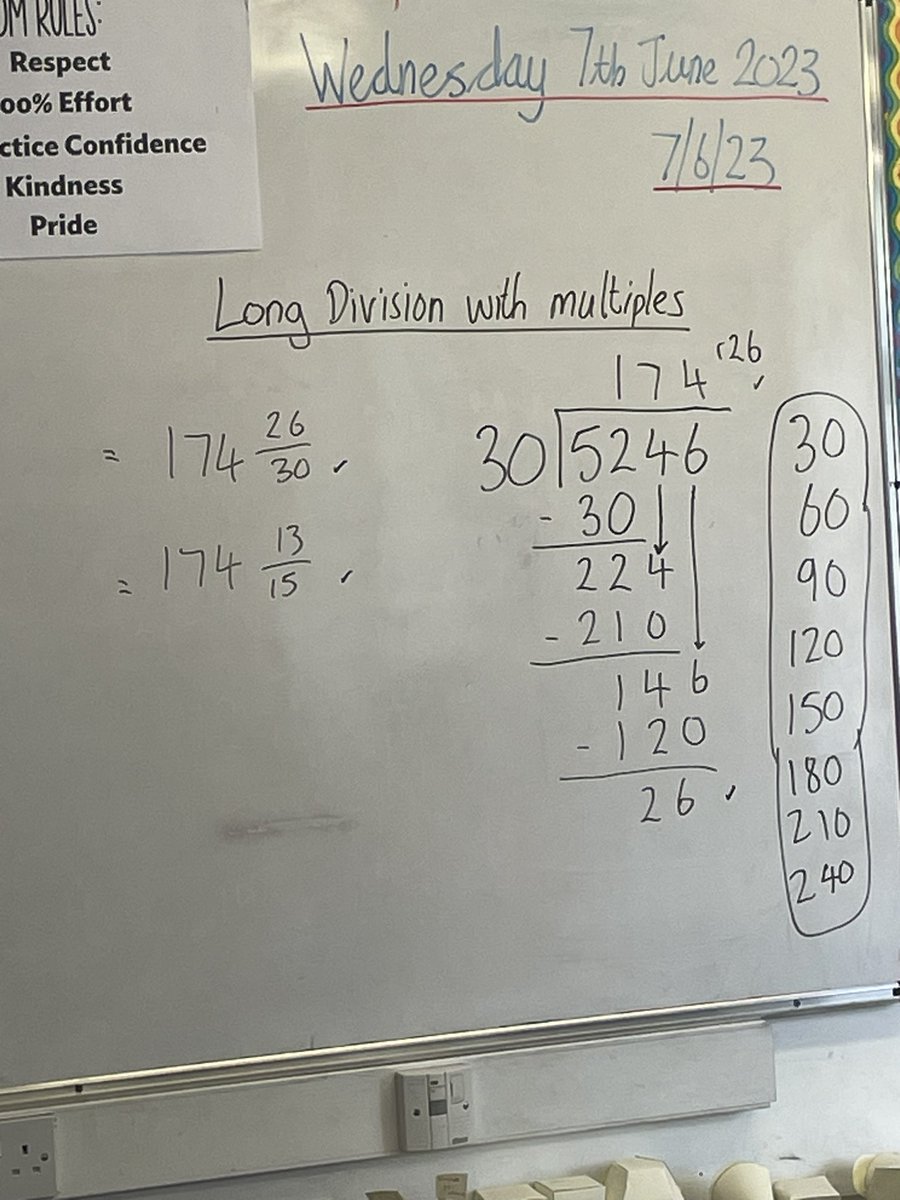 OM RULES:
Respect
00% Effort
ctice Confidence
Kindness
Pride
Wednesday 7th June 2023
7/6/23
Long Division with multiples
174 r26
30 5246
- 30
224
- 210
146
- 120
26
= 174 26/30
= 174 13/15
30
60
90
120
150
180
210
240